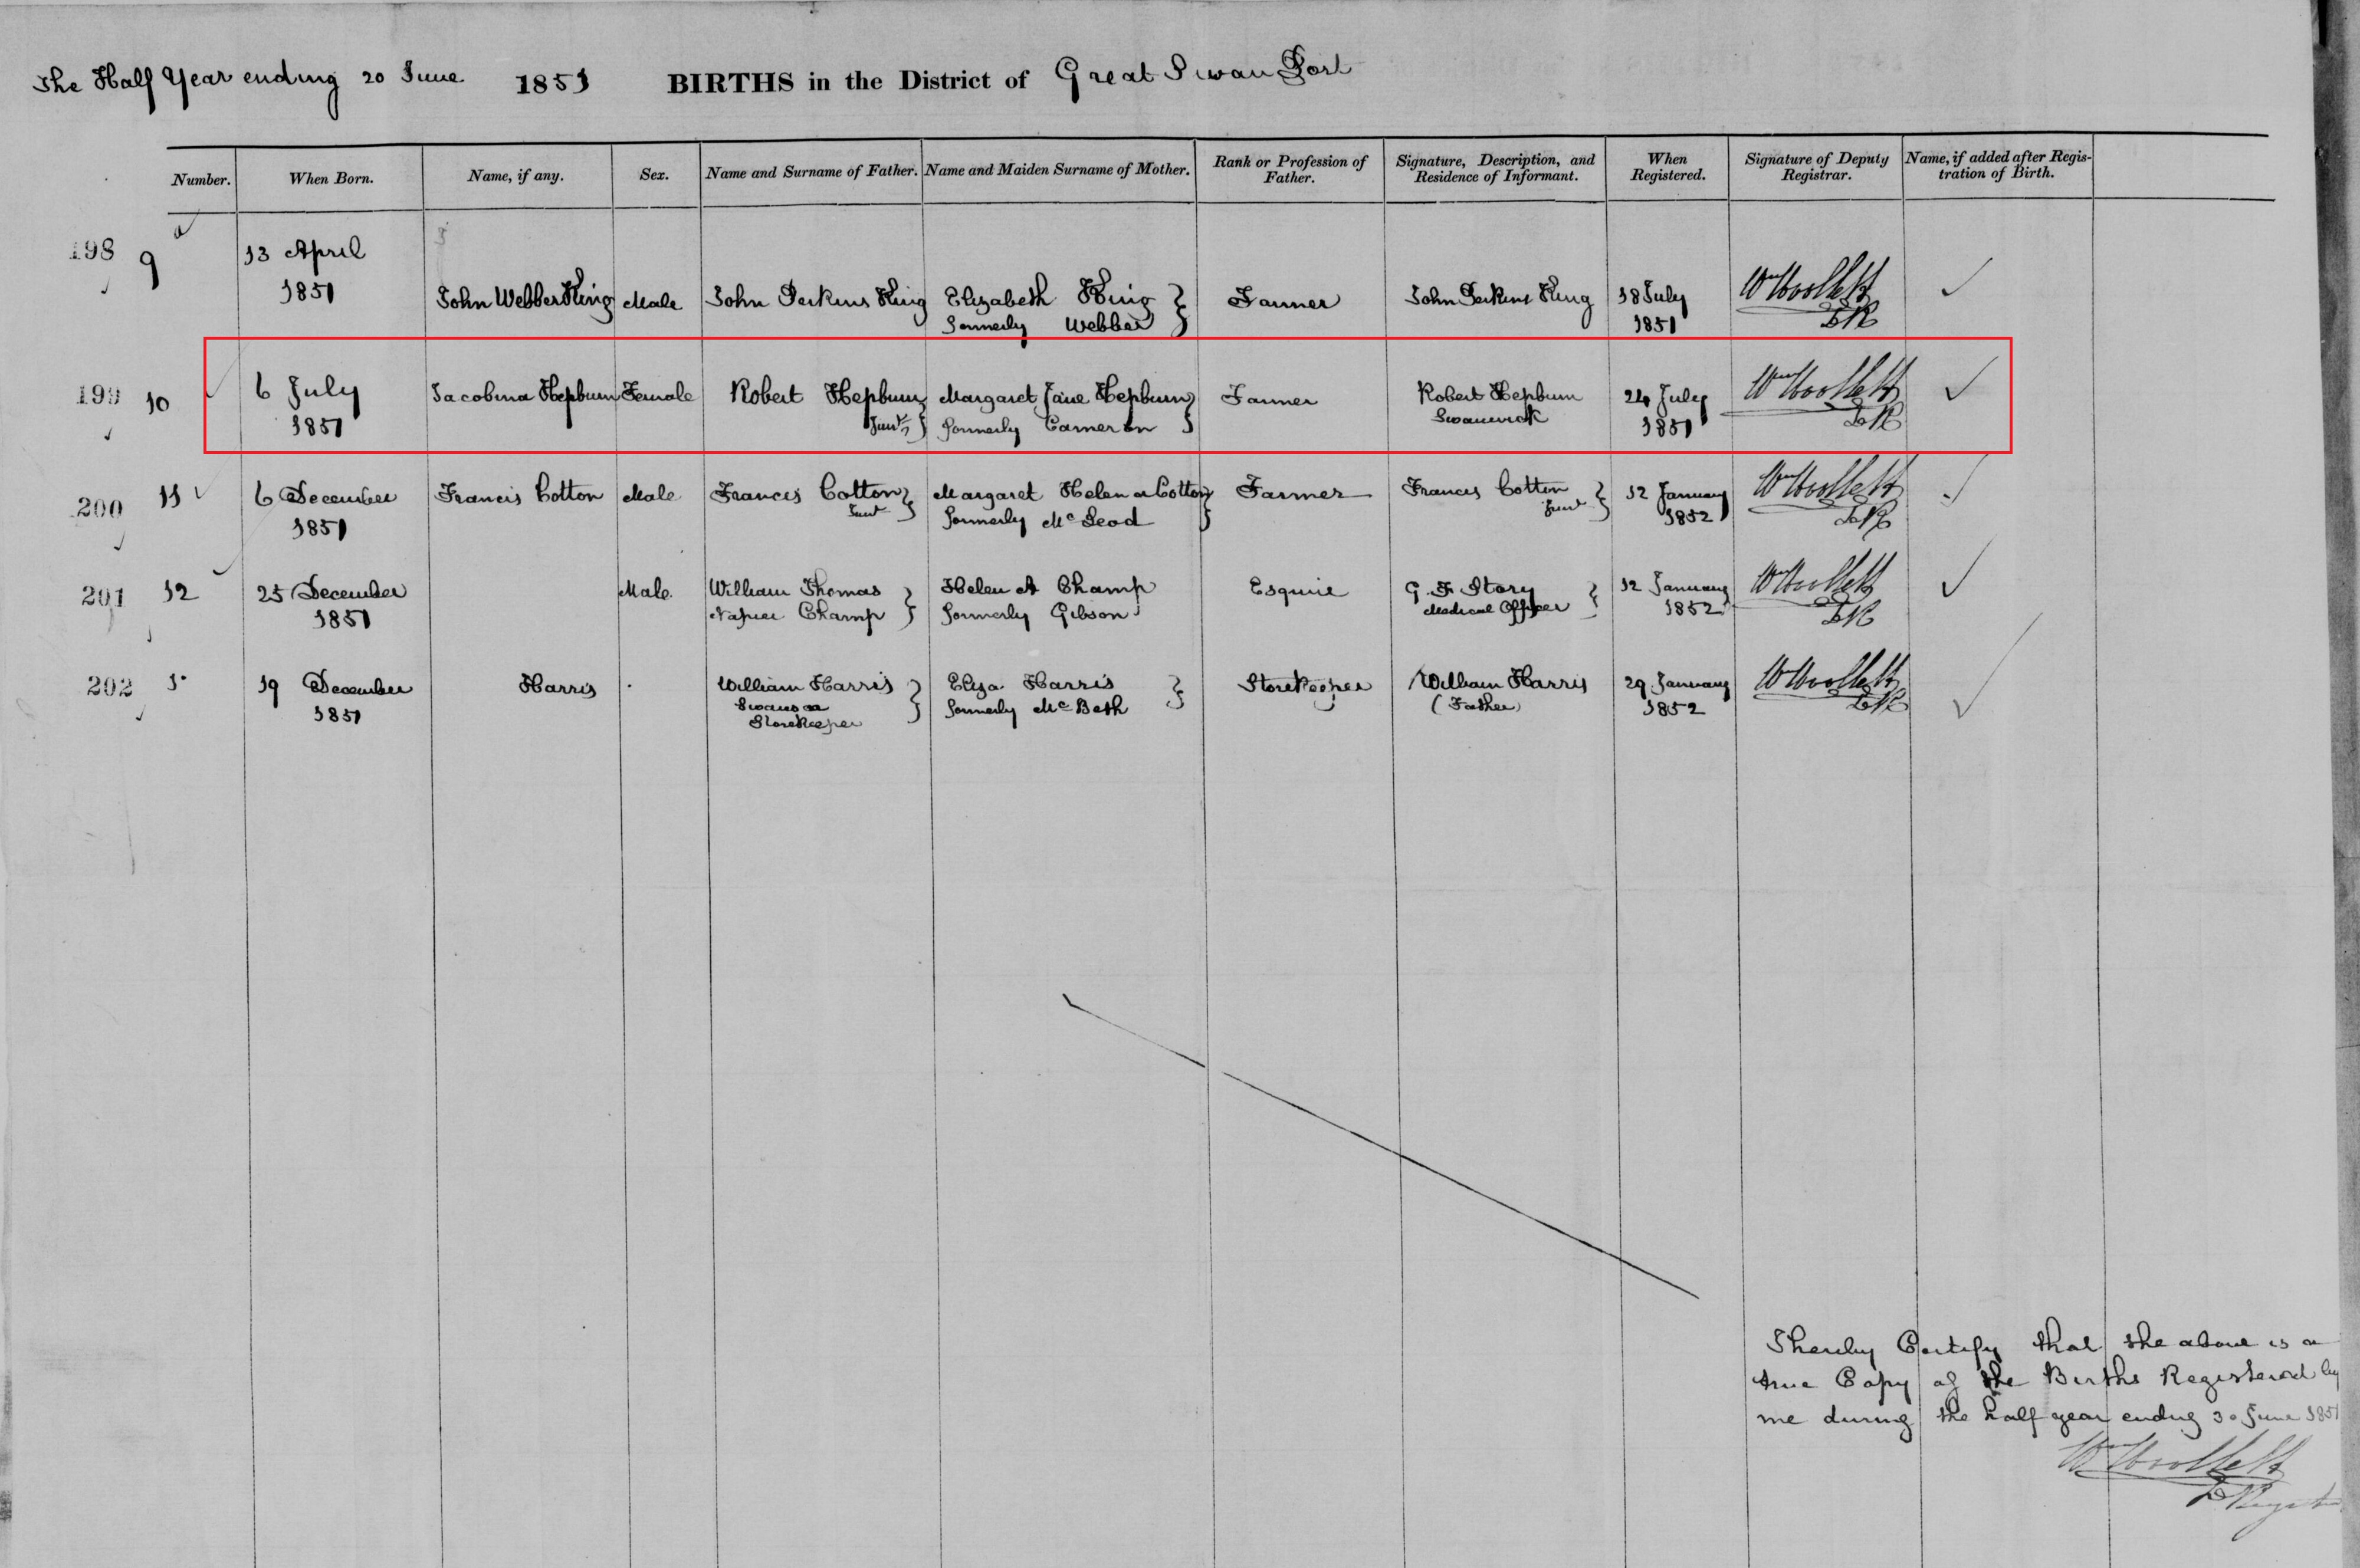 The Half Year ending 20 June 1851 BIRTHS in the District of Great Swan Port
Number. When Born. Name, if any. Sex. Name and Surname of Father. Name and Maiden Surname of Mother. Rank or Profession of Father. Signature, Description, and Residence of Informant. When Registered. Signature of Deputy Registrar. Name, if added after Registration of Birth.
198 9 13 April John Webber King Male John Perkins King Elizabeth King } Farmer John Perkins King 18 July Wm Woollett
1851 formerly Webber 1851 DR
199 10 6 July Jacobina Hepburn Female Robert Hepburn } Margaret Jane Hepburn } Farmer Robert Hepburn 24 July Wm Woollett
1851 Junr formerly Cameron Swanwick 1851 DR
200 11 6 December Francis Cotton Male Francis Cotton } Margaret Helen Cotton } Farmer Francis Cotton } 12 January Wm Woollett
1851 Junr formerly McLeod Junr 1852 DR
201 12 25 December Male William Thomas } Helen A Champ Esquire G. F. Story } 12 January Wm Woollett
1851 Napier Champ formerly Gibson Medical Officer 1852 DR
202 19 December Harris William Harris } Eliza Harris } Storekeeper William Harris 29 January Wm Woollett
1851 Swansea formerly McBeth (Father) 1852 DR
Storekeeper
I hereby Certify that the above is a
true Copy of the Births Registered by
me during the half year ending 30 June 1851
Wm Woollett